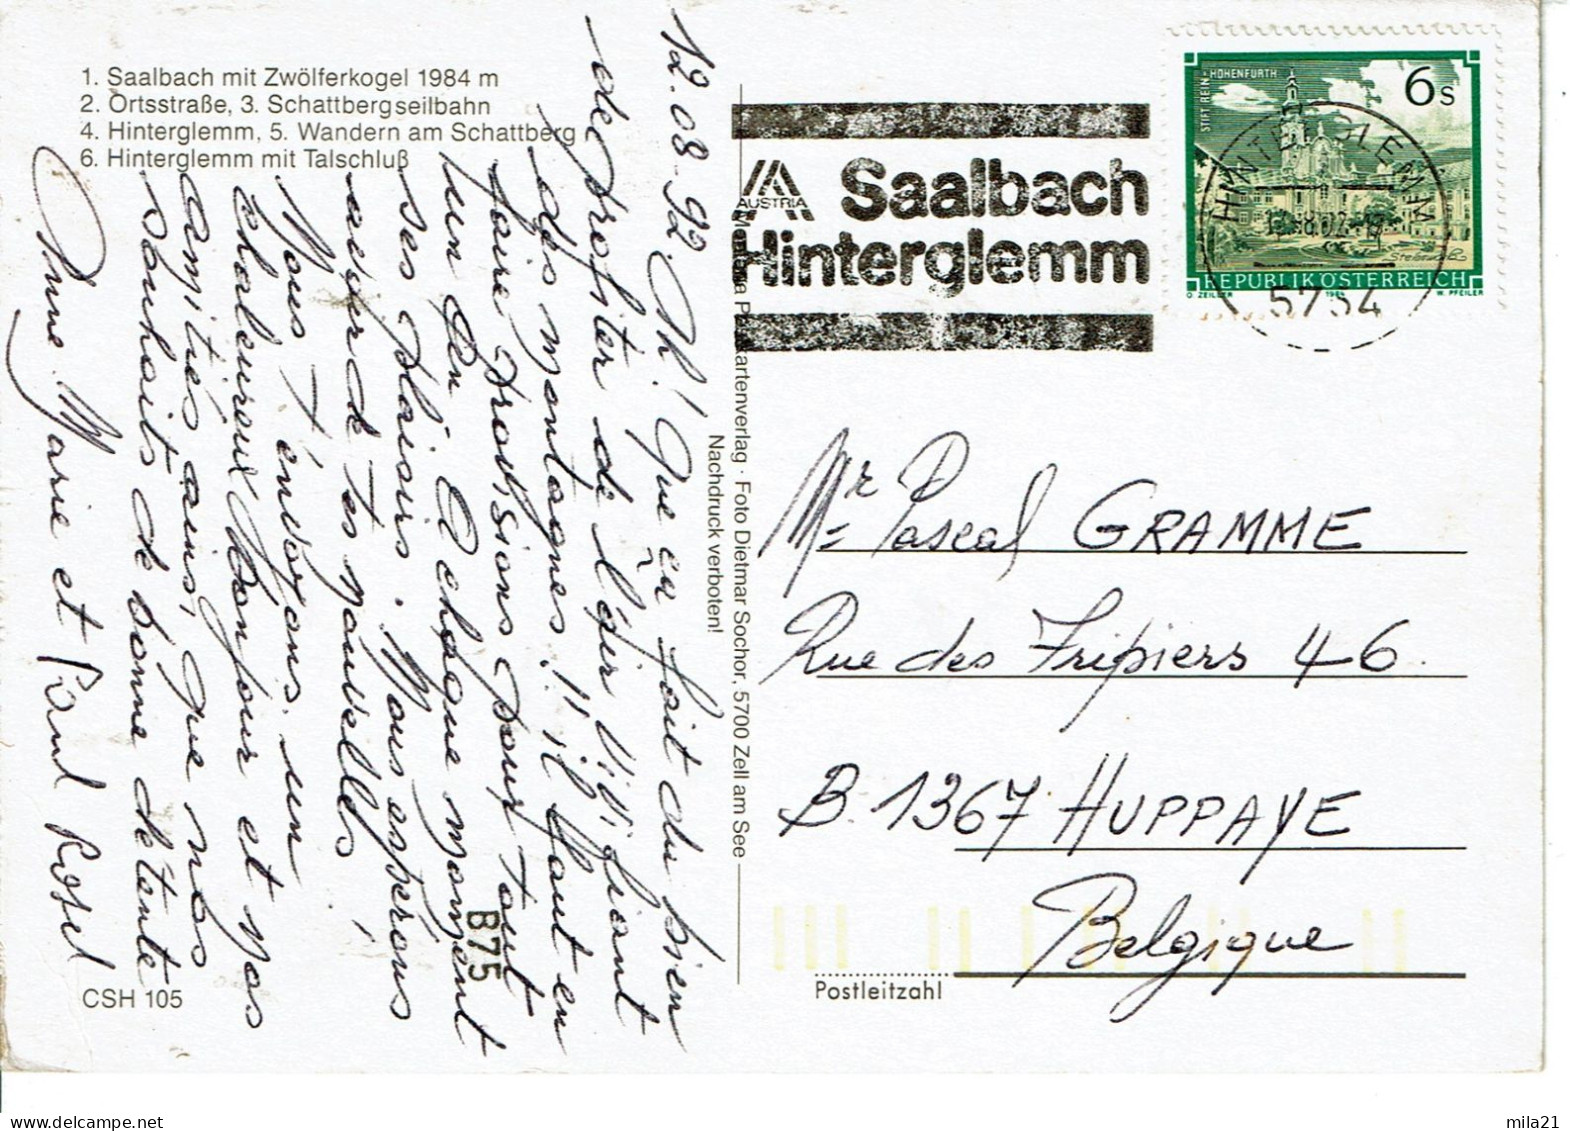 1. Saalbach mit Zwölferkogel 1984 m
2. Ortsstraße, 3. Schattbergseilbahn
4. Hinterglemm, 5. Wandern am Schattberg
6. Hinterglemm mit Talschluß
12.08.92. Ah! Que ça fait du bien
de profiter de l'air vivifiant
des montagnes! Il faut en
faire provisions pour tout
un an. A chaque moment
ses plaisirs. Nous espérons
de tes nouvelles.
Nous t'envoyons un
chaleureux bonjour et nos
amitiés ainsi que nos
souhaits de bonne détente
Anne Marie et Paul Rosel
CSH 105
B75
Postkartenverlag · Foto Dietmar Sochor, 5700 Zell am See
Nachdruck verboten!
AUSTRIA
Saalbach
Hinterglemm
STIFT REIN - HOHENFURTH
6s
REPUBLIK ÖSTERREICH
O. ZEILLER 1984 W. PFEILER
HINTERGLEMM
5754
Mr Pascal GRAMME
Rue des Fripiers 46
B. 1367 HUPPAYE
Belgique
Postleitzahl
mila21